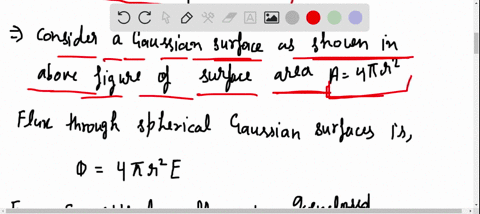 ⇒) Consider a Gaussian surface as shown in
above figure of surface area A = 4πr²
Flux through spherical Gaussian surfaces is,
Φ = 4πr²E